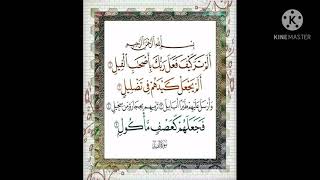 بسم الله الرحمن الرحيم
ألم تر كيف فعل ربك بأصحاب الفيل
ألم يجعل كيدهم في تضليل
وأرسل عليهم طيرا أبابيل ترميهم بحجارة من سجيل
فجعلهم كعصف مأكول
Made with
KINEMASTER